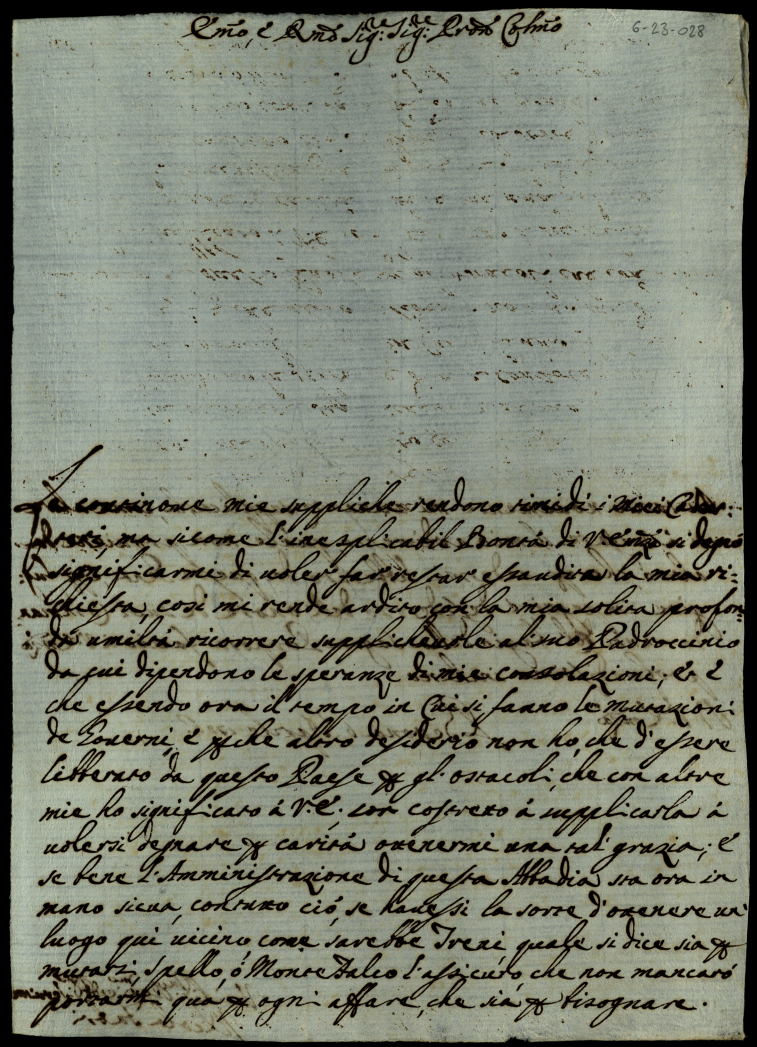 Emo, è Rmo Sig.re Sig.re Prõn Colmo
6-23-028
Le continoue mie suppliche rendono timidi i miei
ma sicome l'inesplicabil Bontà di V. Emza si degnò
significarmi di uoler far restar essaudita la mia ri=
chiesta, così mi rende ardito con la mia solita profon=
da umiltà ricorrere supplicheuole al suo Padroccinio
da cui dipendono le speranze di mie consolazioni; et è
che essendo ora il tempo in Cui si fanno le mutazioni
de Gouerni, è pche altro desiderio non hò, che d'essere
libberato da questo Paese p gl'ostacoli, che con altre
mie ho significato à V. E. son costretto à supplicarla à
uolersi degnare p carità ottenermi una tal grazia; è
se bene l'Amministrazione di questa Abbadia sta ora in
mano sicura, contutto ciò, se hauessi la sorte d'ottenere un
luogo qui uicino come sarebbe Treui quale si dice sia p
mutarsi, Spello, ò Monte Falco l'assicuro che non mancarò
portarmi quà p ogni affare, che sià p bisognare.